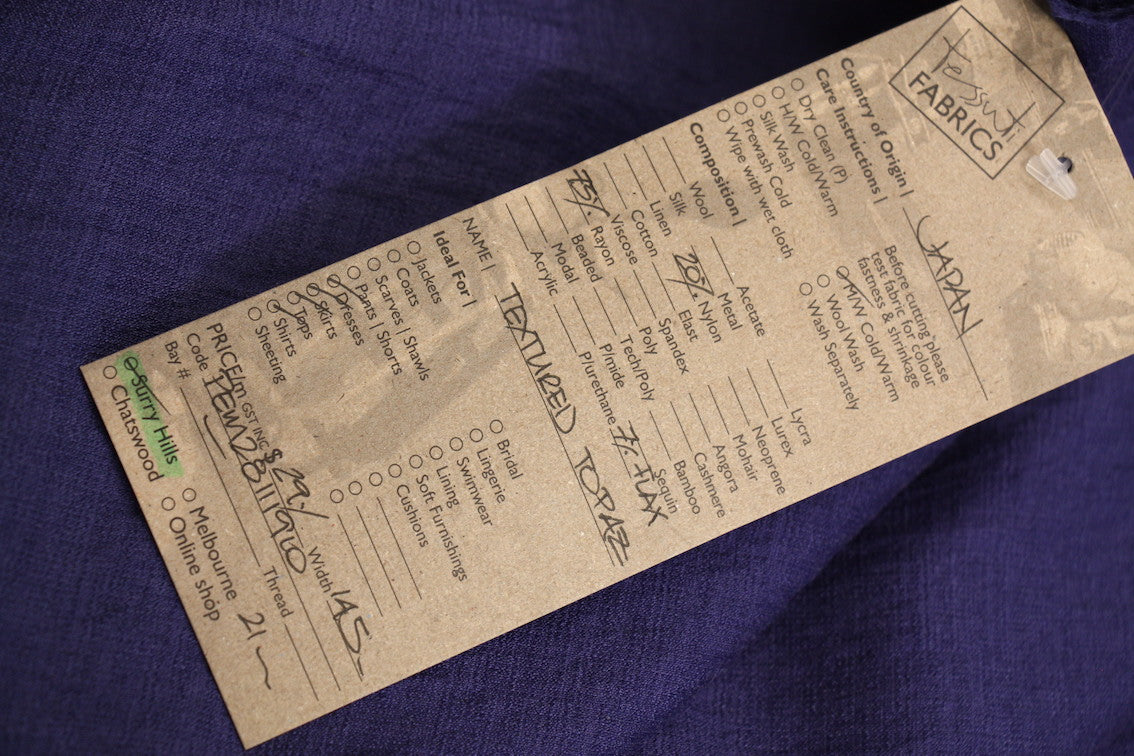 tessuti
FABRICS
Country of Origin | JAPAN
Care Instructions |
Dry Clean (P)
H/W Cold/Warm
Silk Wash
Prewash Cold
Wipe with wet cloth
Before cutting please
test fabric for colour
fastness & shrinkage
H/W Cold/Warm
Wool Wash
Wash Separately
Composition |
Wool
Silk
Linen
Cotton
Viscose
73% Rayon
Beaded
Modal
Acrylic
Acetate
Metal
20% Nylon
Elast
Spandex
Poly
Tech/Poly
P/mide
P/urethane
Lycra
Lurex
Neoprene
Mohair
Angora
Cashmere
Bamboo
Sequin
7% FLAX
NAME | TEXTURED TOPAZ
Ideal For |
Jackets
Coats
Scarves | Shawls
Pants | Shorts
Dresses
Skirts
Tops
Shirts
Sheeting
Bridal
Lingerie
Swimwear
Lining
Soft Furnishings
Cushions
PRICE/m GST INC $29.- Width 145
Code
Bay # Thread
Surry Hills
Chatswood
Melbourne
Online shop
21